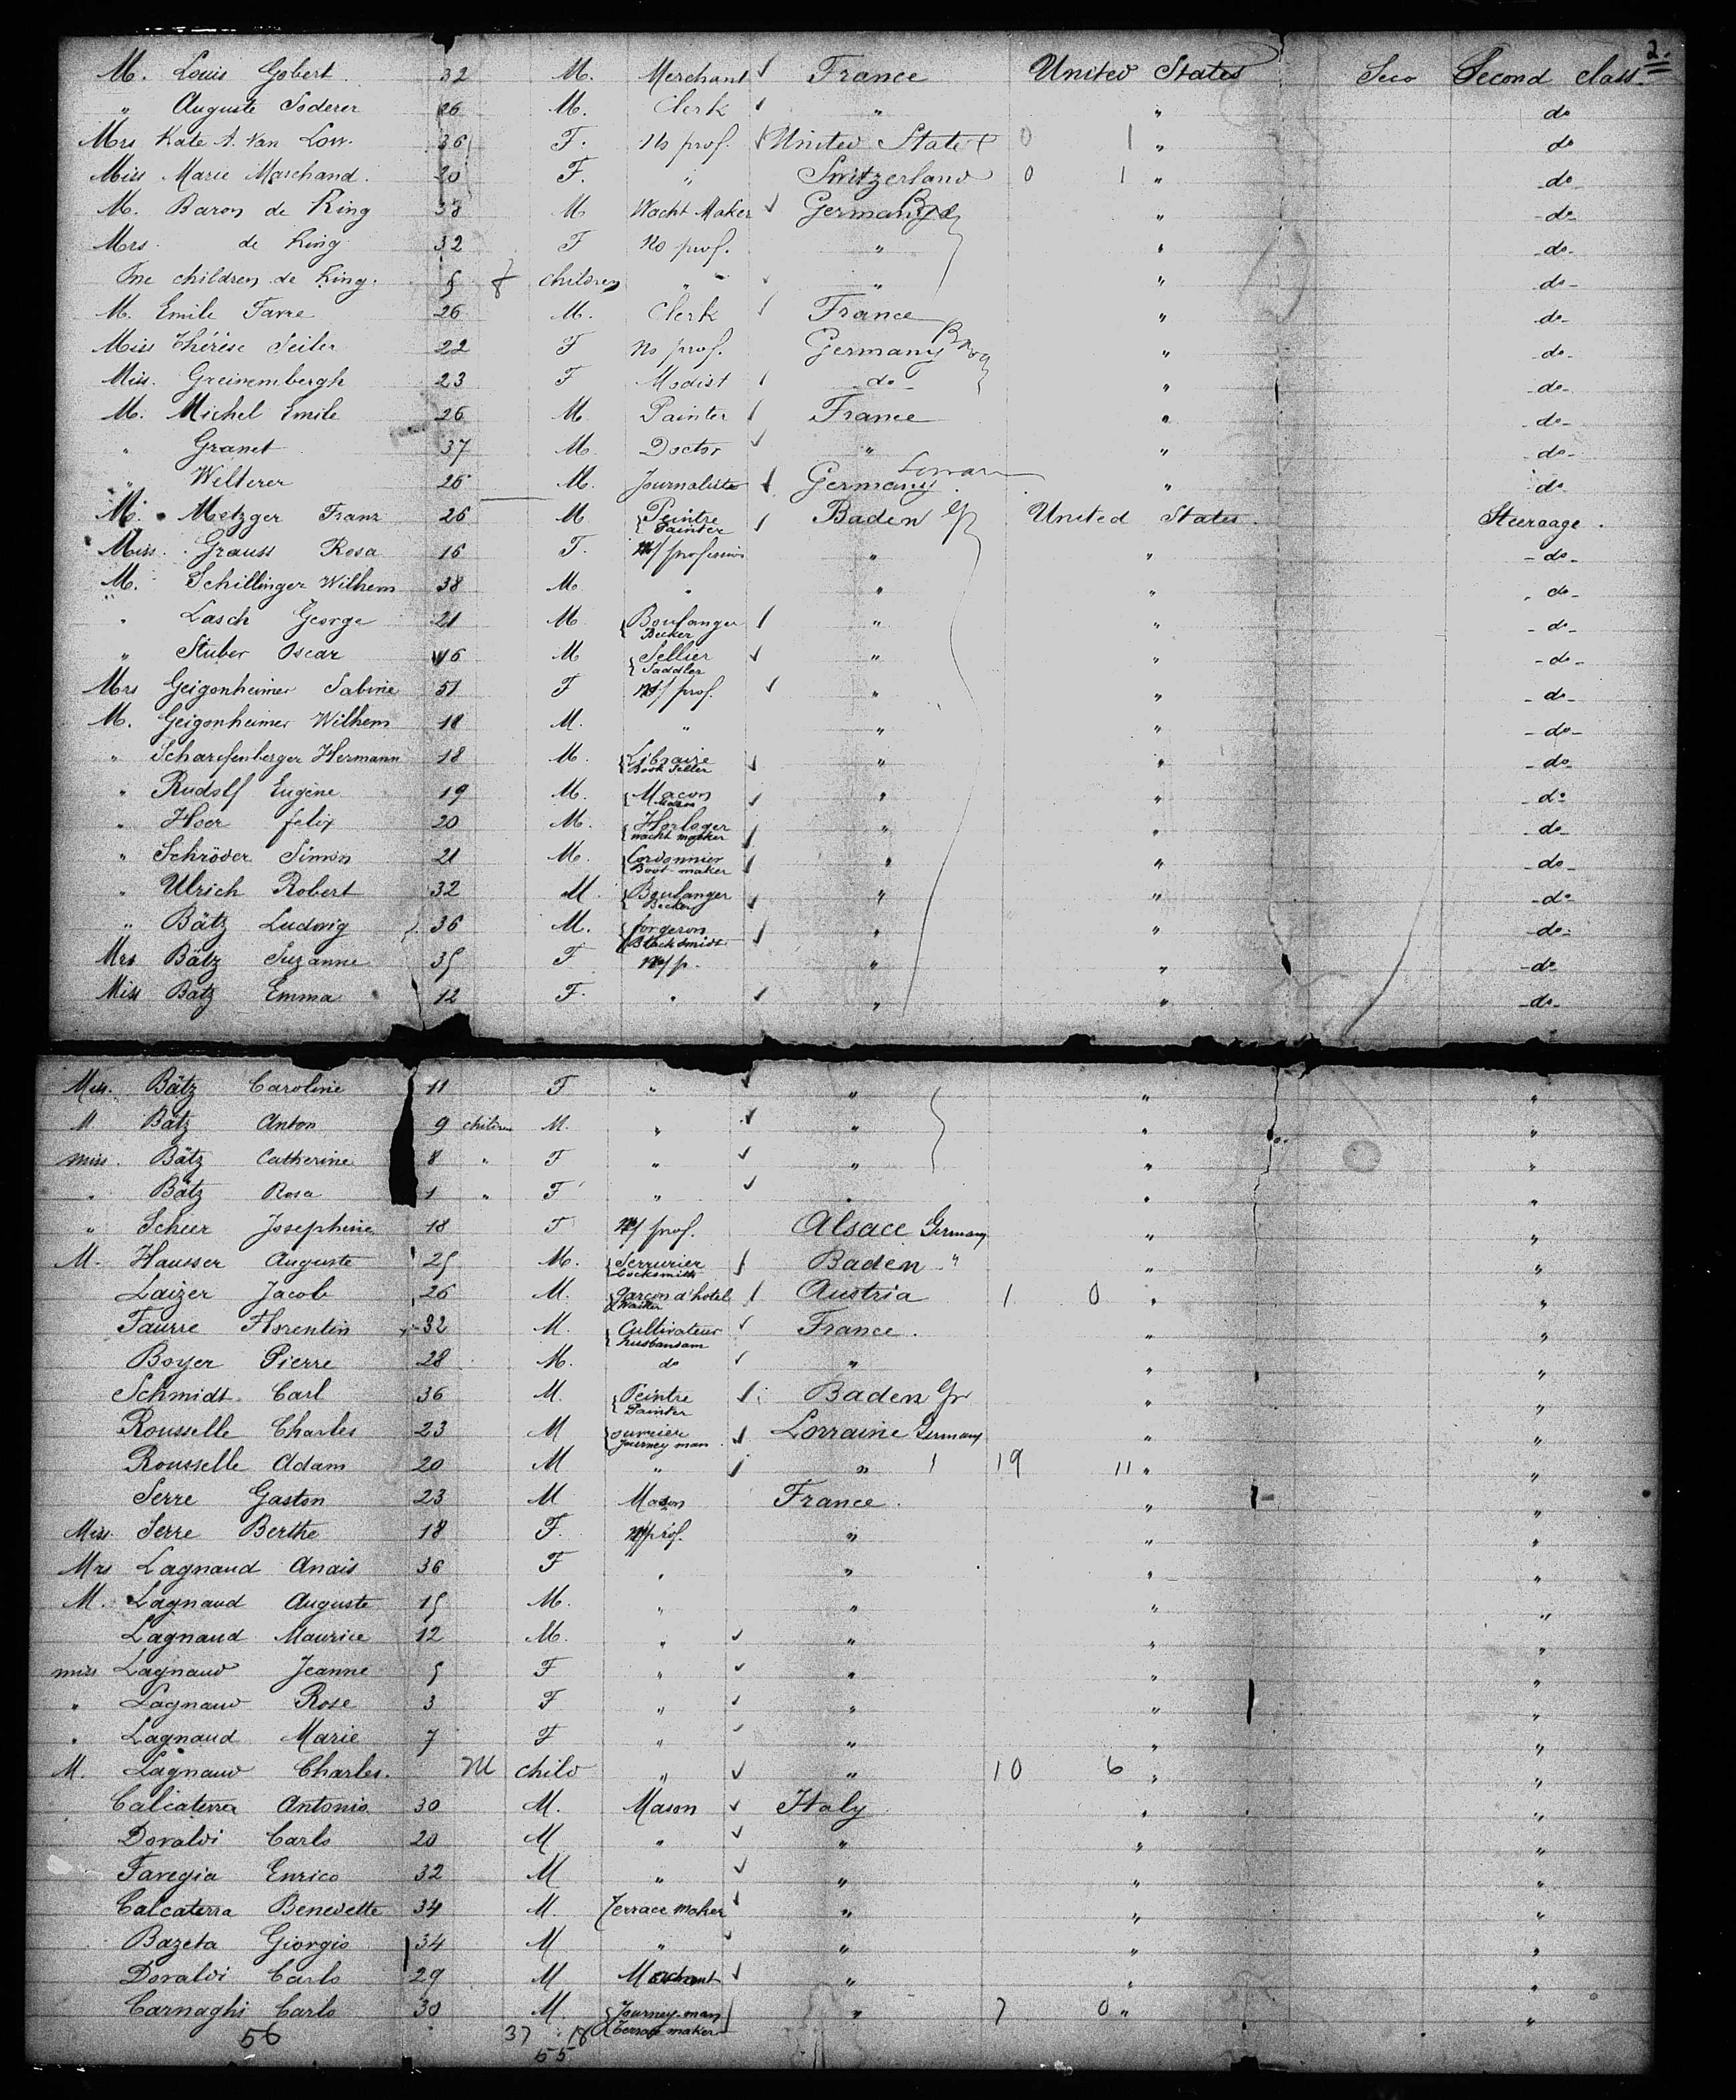 2.
M. Louis Gobert 32 M. Merchant France United States Seco Second class
" Auguste Soderer 26 M. Clerk " " do
Mrs Kate A. Van Low. 36 F. No prof. United States 0 1 " do
Miss Marie Marchand. 20 F. " Switzerland 0 1 " do
M. Baron de King 38 M Wacht Maker Germany " do
Mrs. de King 32 F No prof. " " do
One children de King. 5 f children " " " do
M. Emile Favre 26 M. Clerk France " do
Miss Thérèse Seiler 22 F No prof. Germany " do
Miss. Greinembergh 23 F Modist do " do
M. Michel Emile 26 M Painter France " do
" Granet 37 M Doctor " " do
" Welterer 26 M. Journaliste Germany " do
M. Metzger Franz 26 M {Peintre Painter Baden Gr United States. Steerage.
Miss. Grauss Rosa 16 F. No profession " " do
M. Schillinger Wilhem 38 M " " " do
" Lasch George 21 M {Boulanger Beeker " " do
" Stuber Oscar 46 M {Sellier Saddler " " do
Mrs Geigonheimer Sabine 51 F No prof. " " do
M. Geigonheimer Wilhem 18 M. " " " do
" Scharefenberger Hermann 18 M. {Libraire Book Seller " " do
" Rudolf Eugène 19 M. {Macon Mason " " do
" Hoer felix 20 M. {Horloger wacht maker " " do
" Schröder Simon 21 M. {Cordonnier Boot-maker " " do
" Ulrich Robert 32 M. {Boulanger Becker " " do
" Bätz Ludwig 36 M. {forgeron Blacksmidt " " do
Mrs Bätz Suzanne 35 F No p. " " do
Miss Bätz Emma 12 F. " " " do
Miss. Bätz Caroline 11 F " " " "
M Bätz Anton 9 children M. " " " "
miss. Bätz Catherine 8 " F " " " "
" Bätz Rosa 1 " F " " " "
" Scheer Josephine 18 F No prof. Alsace Germany " "
M. Hausser Auguste 25 M. {Serrurier Locksmith Baden " " "
Laizer Jacob 26 M. {garçon d'hotel Waiter Austria 1 0 " "
Faurre Florentin 32 M. {Cultivateur husbansam France. " "
Boyer Pierre 28 M. do " " "
Schmidt Carl 36 M. {Peintre Painter Baden Gr " "
Rousselle Charles 23 M {ouvrier Journey man Lorraine Germany " "
Rousselle Adam 20 M " " 1 19 11 " "
Serre Gaston 23 M Mason France. " "
Miss. Serre Berthe 18 F. No prof. " " "
Mrs Lagnaud Anais 36 F " " " "
M. Lagnaud Auguste 15 M. " " " "
Lagnaud Maurice 12 M. " " " "
miss Lagnaud Jeanne 5 F " " " "
" Lagnaud Rose 3 F " " " "
" Lagnaud Marie 7 F " " " "
M. Lagnaud Charles. M child " " 10 6 " "
Calcaterra Antonio 30 M. Mason Italy " "
Doraldi Carlo 20 M " " " "
Faregia Enrico 32 M " " " "
Calcaterra Benedette 34 M. Terrace maker " " "
Bazeta Giorgio 34 M " " " "
Doraldi Carlo 29 M Merchant " " "
Carnaghi Carlo 30 M. {Journey-man Terrace maker " 7 0 " "
56 37 18
55